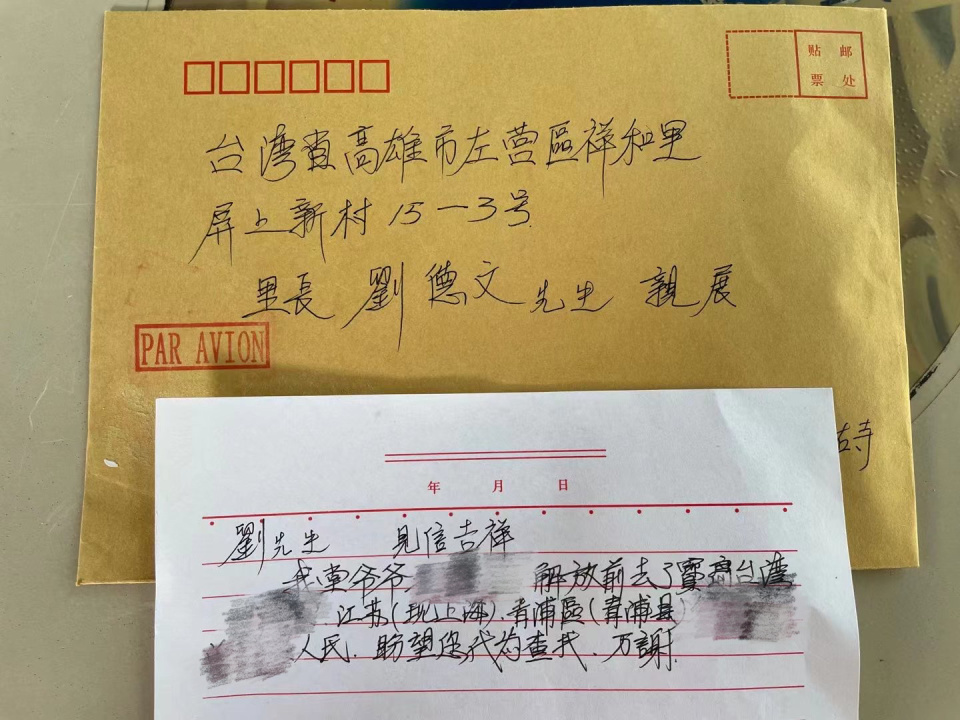 贴 邮
票 处
台湾省高雄市左营區祥和里
屏山新村 15-3号
里長 劉德文先生 親展
PAR AVION
年 月 日
劉先生 見信吉祥
我堂爷爷 解放前去了 台湾
江苏(现上海).青浦區(青浦县)
人民.盼望您 查找.万謝.